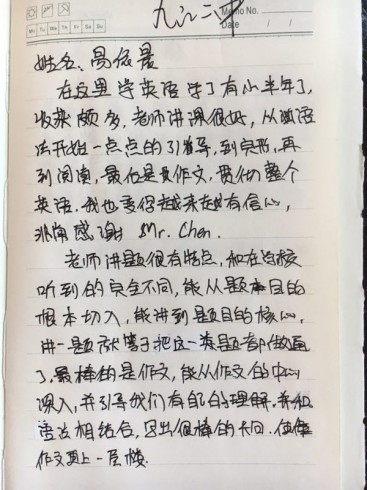 九江六中
Memo No.
Mo Tu We Th Fr Sa Su
Date / /
姓名、易依晨
在这里学英语学了有小半年了,
收获颇多,老师讲课很好,从以语
法开始一点点的引导,到完形,再
到阅读,最后是作文,贯彻整个
英语,我也变得越来越有信心,
非常感谢 Mr. Chen.
老师讲题很有特点,和在学校
听到的完全不同,能从题目的
根本切入,能讲到题目的核心,
讲一题就等于把这一类题都做通
了,最棒的是作文,能从作文的中心
深入,并引导我们有自己的理解,并和
语法相结合,写出很棒的句子,使
作文更上一层楼.